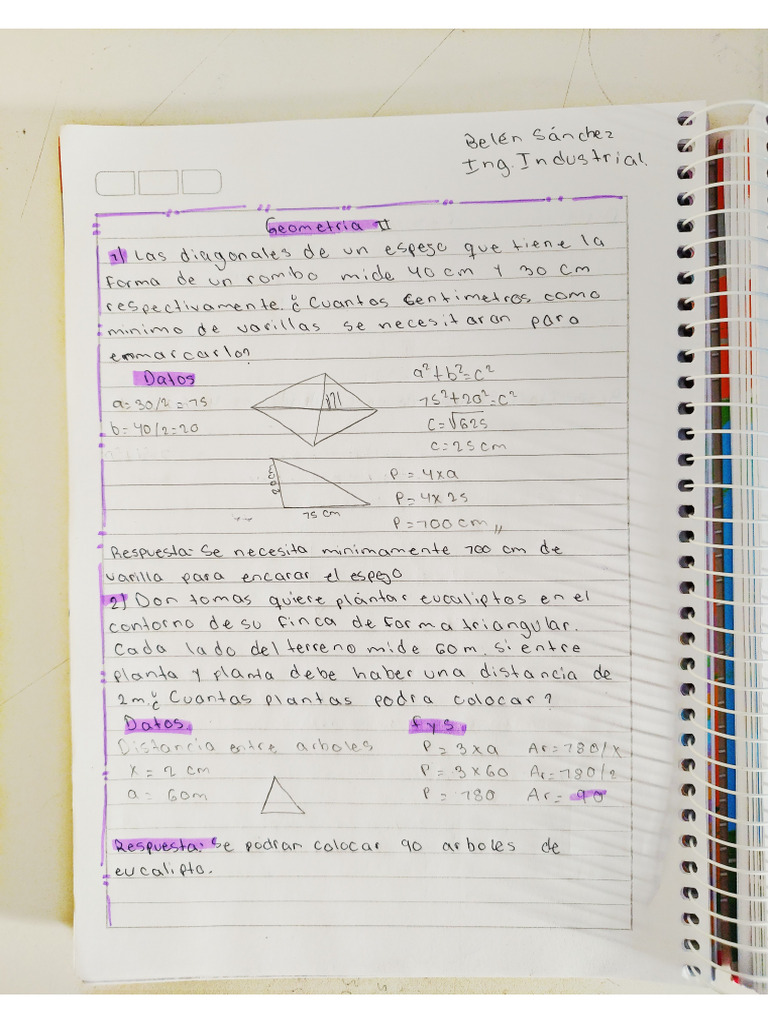 Belén Sánchez
Ing. Industrial.
Geometria II
1) Las diagonales de un espejo que tiene la
forma de un rombo mide 40 cm y 30 cm
respectivamente. ¿Cuantos centimetros como
minimo de varillas se necesitaran para
enmarcarlo?
Datos
a=30/2=15
b=40/2=20
a²+b²=c²
15²+20²=c²
c=√625
c=25cm
20cm
15 cm
P= 4xa
P=4x25
P=100cm
Respuesta: Se necesita minimamente 100 cm de
varilla para encarar el espejo
2) Don tomas quiere plantar eucaliptos en el
contorno de su finca de forma triangular.
Cada lado del terreno mide 60m, si entre
planta y planta debe haber una distancia de
2m. ¿Cuantas plantas podra colocar?
Datos.
Distancia entre arboles
x= 2 cm
a= 60m
f y s.
P= 3xa Ar=180/x
P= 3x60 Ar=180/2
P= 180 Ar= 90
Respuesta: Se podran colocar 90 arboles de
eucalipto.